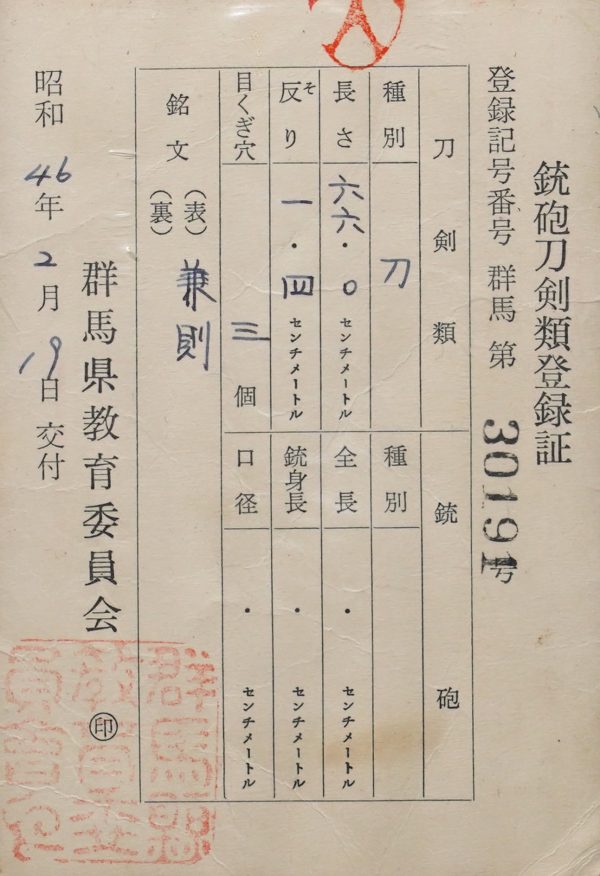 銃砲刀剣類登録証
登録記号番号 群馬 第 30191 号
刀剣類
銃砲
種別 刀
種別
長さ 六六・〇 センチメートル
全長 ・ センチメートル
反り 一・四 センチメートル
そ
銃身長 ・ センチメートル
目くぎ穴 三 個
口径 ・ センチメートル
銘文 (表) 兼則
(裏)
群馬県教育委員会 ㊞
昭和 46年 2月 19日 交付